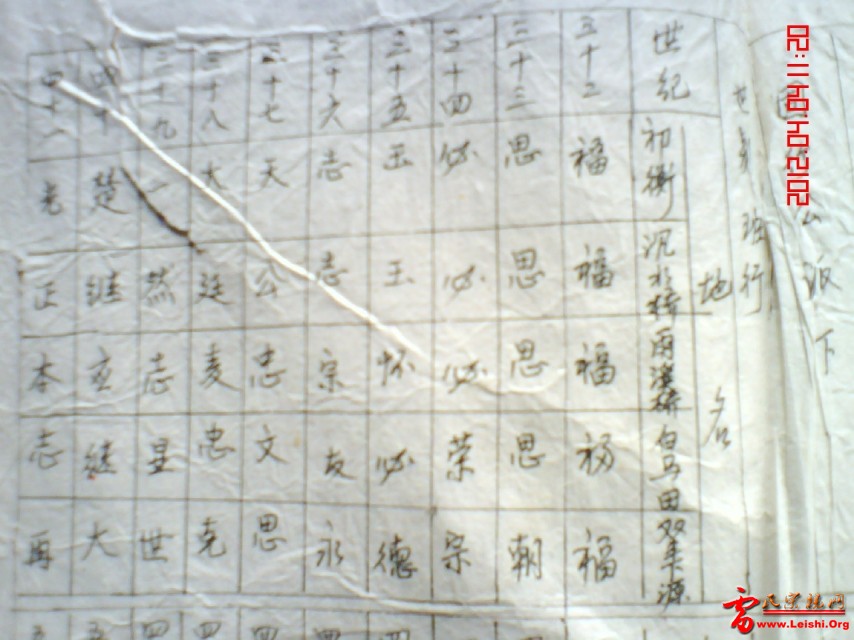 公派下
班行
地名
世纪 初衡 白马田 双丰源
三十二 福 福 福 福 福
三十三 思 思 思 思 朝
三十四 必 必 必 荣 宗
三十五 玉 玉 怀 必 德
三十六 志 志 宗 友 永
三十七 天 公 志 文 思
三十八 大 廷 麦 忠 克
三十九 一 然 志 星 世
四十 楚 继 继 大
四十一 光 正 本 志 再
2012 04 04 11:02
雷氏宗亲网
www.Leishi.Org